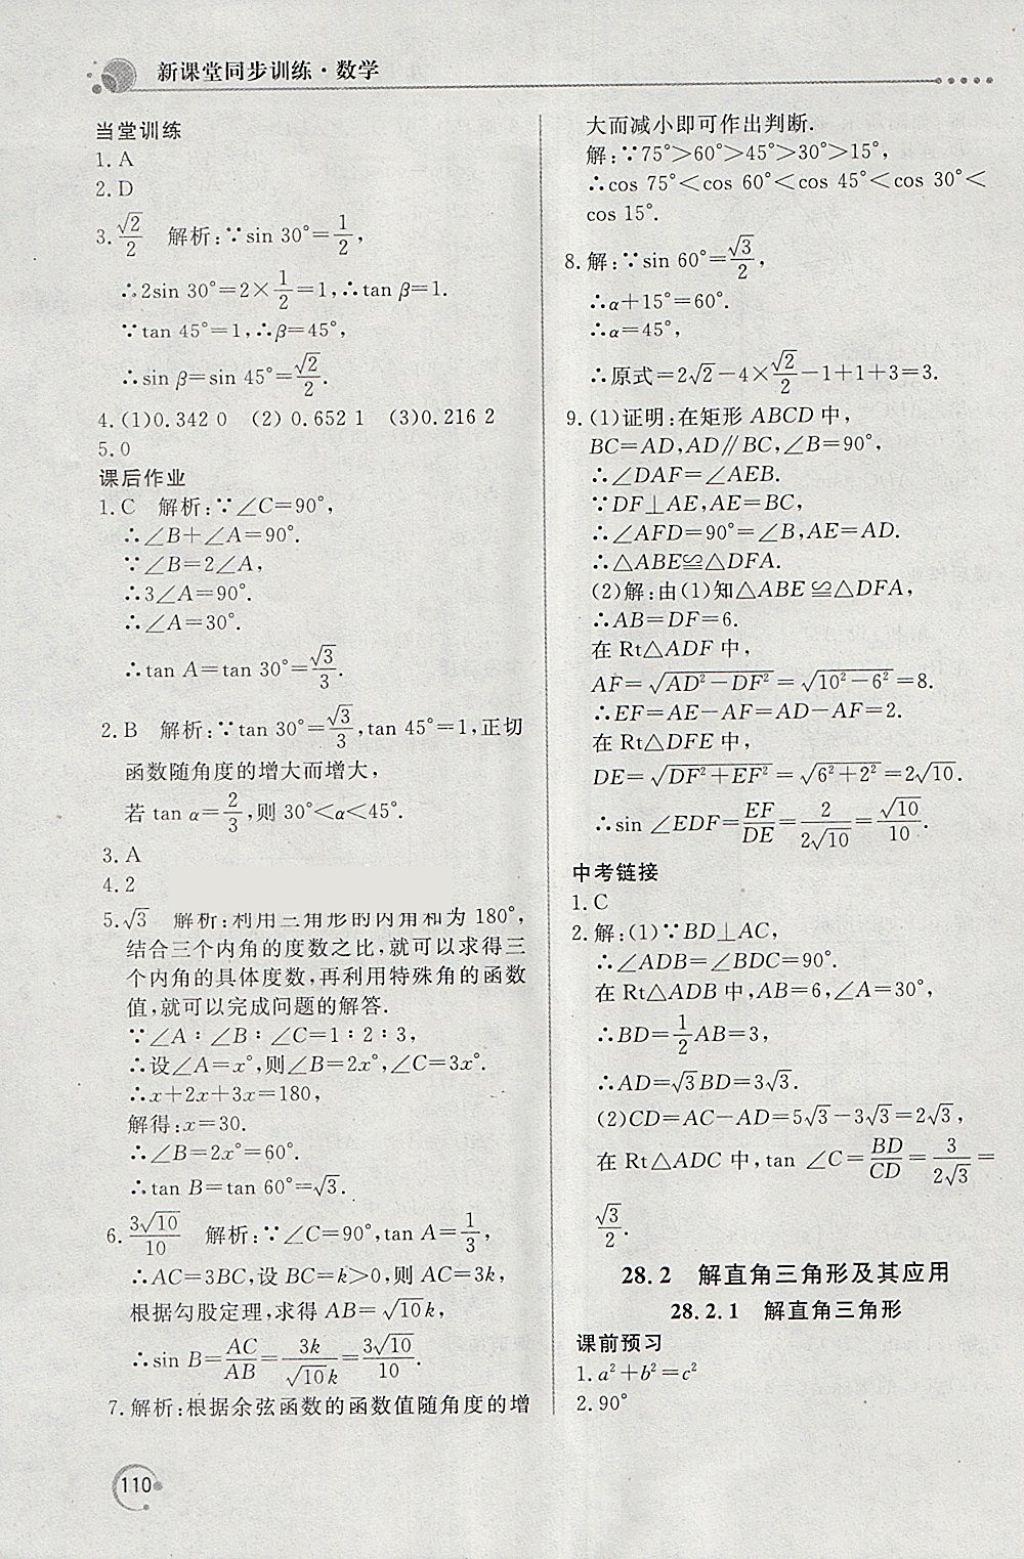 新课堂同步训练·数学
当堂训练
1. A
2. D
3. √2/2 解析:∵sin 30°=1/2,
∴2sin 30°=2×1/2=1,∴tan β=1.
∵tan 45°=1,∴β=45°,
∴sin β=sin 45°=√2/2.
4.(1)0.342 0 (2) 0.652 1 (3)0.216 2
5.0
课后作业
1.C 解析:∵∠C=90°,
∴∠B+∠A=90°.
∵∠B=2∠A,
∴3∠A=90°.
∴∠A=30°.
∴tan A=tan 30°=√3/3.
2.B 解析:∵tan 30°=√3/3,tan 45°=1,正切
函数随角度的增大而增大,
若 tan α=2/3,则 30°<α<45°.
3. A
4.2
5.√3 解析:利用三角形的内角和为 180°,
结合三个内角的度数之比,就可以求得三
个内角的具体度数,再利用特殊角的函数
值,就可以完成问题的解答.
∵∠A∶∠B∶∠C=1∶2∶3,
∴设∠A=x°,则∠B=2x°,∠C=3x°.
∴x+2x+3x=180,
解得:x=30.
∴∠B=2x°=60°.
∴tan B=tan 60°=√3.
6. 3√10/10 解析:∵∠C=90°,tan A=1/3,
∴AC=3BC,设 BC=k>0,则 AC=3k,
根据勾股定理,求得 AB=√10k,
∴sin B=AC/AB=3k/√10k=3√10/10.
7.解析:根据余弦函数的函数值随角度的增
大而减小即可作出判断.
解:∵75°>60°>45°>30°>15°,
∴cos 75°<cos 60°<cos 45°<cos 30°<
cos 15°.
8.解:∵sin 60°=√3/2,
∴α+15°=60°.
∴α=45°,
∴原式=2√2-4×√2/2-1+1+3=3.
9.(1)证明:在矩形 ABCD 中,
BC=AD,AD∥BC,∠B=90°,
∴∠DAF=∠AEB.
∵DF⊥AE,AE=BC,
∴∠AFD=90°=∠B,AE=AD.
∴△ABE≌△DFA.
(2)解:由(1)知△ABE≌△DFA,
∴AB=DF=6.
在 Rt△ADF 中,
AF=√(AD²-DF²)=√(10²-6²)=8.
∴EF=AE-AF=AD-AF=2.
在 Rt△DFE 中,
DE=√(DF²+EF²)=√(6²+2²)=2√10.
∴sin ∠EDF=EF/DE=2/2√10=√10/10.
中考链接
1.C
2.解:(1)∵BD⊥AC,
∴∠ADB=∠BDC=90°.
在 Rt△ADB 中,AB=6,∠A=30°,
∴BD=1/2AB=3,
∴AD=√3BD=3√3.
(2)CD=AC-AD=5√3-3√3=2√3,
在 Rt△ADC 中,tan ∠C=BD/CD=3/2√3=
√3/2.
28.2 解直角三角形及其应用
28.2.1 解直角三角形
课前预习
1.a²+b²=c²
2.90°
110